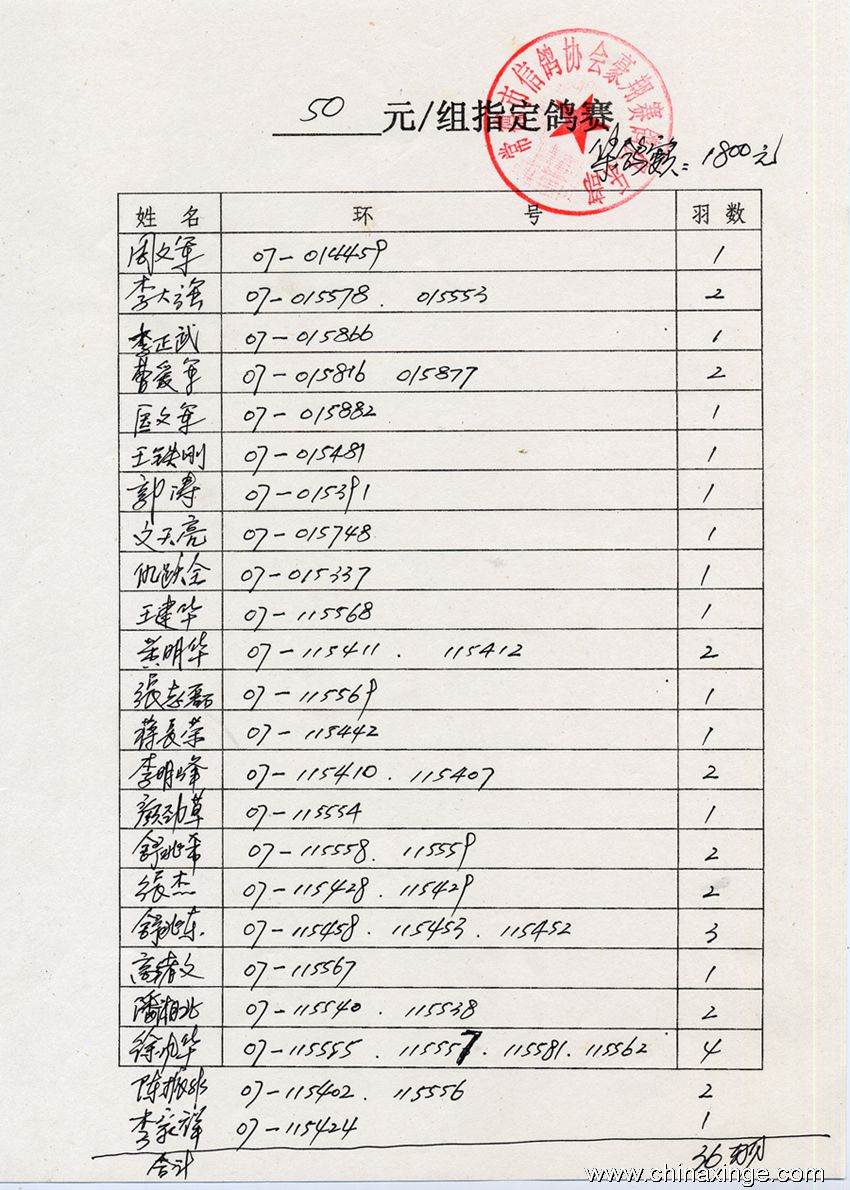 常德市信鸽协会豪翔赛鸽俱乐部
50 元/组指定鸽赛
集鸽额：1800元
姓 名 环 号 羽 数
周文军 07-014459 1
李大强 07-015578 . 015553 2
李正武 07-015866 1
曹爱军 07-015816 015877 2
匡文军 07-015882 1
王铁刚 07-015481 1
郭涛 07-015391 1
文天亮 07-015748 1
仇跃全 07-015337 1
王建华 07-115568 1
黄明华 07-115411 . 115412 2
张志磊 07-115569 1
蒋长荣 07-115442 1
李明峰 07-115410 . 115407 2
颜劲草 07-115554 1
舒兆希 07-115558 . 115559 2
张杰 07-115428 . 115429 2
舒兆东 07-115458 . 115453 . 115452 3
高绪文 07-115567 1
潘湘北 07-115540 . 115538 2
徐帆华 07-115555 . 115557 . 115581 . 115562 4
陈振 07-115402 . 115556 2
李家祥 07-115424 1
合计 36羽
www.chinaxinge.com